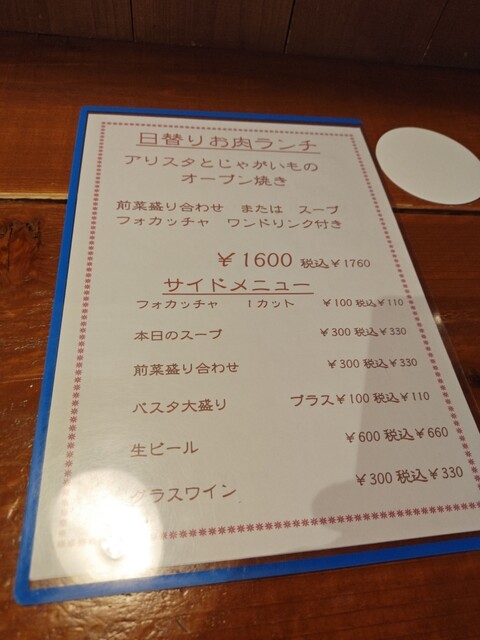 日替りお肉ランチ
アリスタとじゃがいもの
オーブン焼き
前菜盛り合わせ または スープ
フォカッチャ ワンドリンク付き
￥1600 税込￥1760
サイドメニュー
フォカッチャ 1カット ￥100 税込￥110
本日のスープ ￥300 税込￥330
前菜盛り合わせ ￥300 税込￥330
パスタ大盛り プラス￥100 税込￥110
生ビール ￥600 税込￥660
グラスワイン ￥300 税込￥330